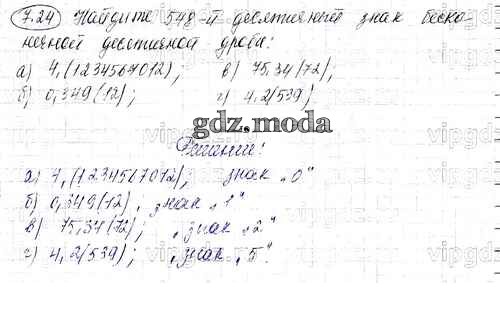 7.24 Найдите 548-й десятичный знак беско-
нечной десятичной дроби:
а) 4,(1234567012); в) 75,34(72);
б) 0,349(12); г) 4,2(539)
gdz.moda
Решение:
а) 7,(1234567012), знак „0"
б) 0,349(12), знак „1"
в) 75,34(72); , знак „2"
г) 4,2(539); , знак „5"